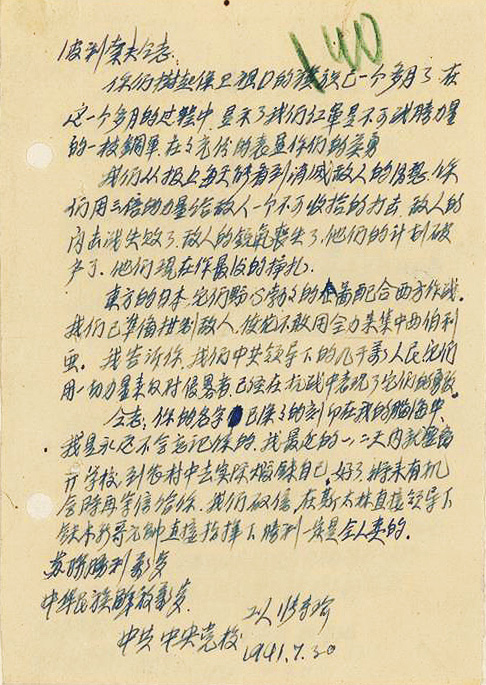 140
波利索夫同志:
你们树起保卫祖国的旗帜已一个多月了,在
这一个多月的过程中,显示了我们红军是不可战胜力量
的一枝鋼軍,在充份的表显你们的英勇
我们从报上每天能看到消滅敌人的消息,你
们用三倍的力量给敌人一个不可收拾的打击,敌人的
闪击战失败了,敌人的銳氣丧失了,他们的计划破
产了,他们现在作最后的掙扎。
東方的日本,它们野心勃勃的企圖配合西方作战。
我们已準备拑制敌人,使他不敢用全力来集中西伯利
亚。我告诉你,我们中共领导下的几千万人民,它们
用一切力量来反对侵畧者,已经在抗战中表现了它们的勇敢
同志:你的名字已深深的刻印在我的腦海中,
我是永远不会忘记你的,我最近的一、二天内就準备離
开学校,到农村中去实际鍛鍊自己,好了,将来有机
会时再写信给你,我们破信,在斯大林直接领导下
鉄木辛哥元帅直接指揮下勝利一定是全人类的。
苏联勝利万岁
中华民族解放万岁
中共中央党校
1941.7.30